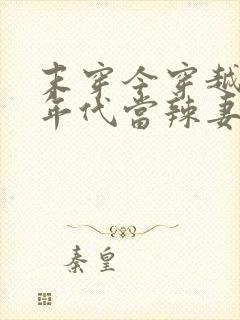 末穿令穿越
年代當辣妻
秦皇